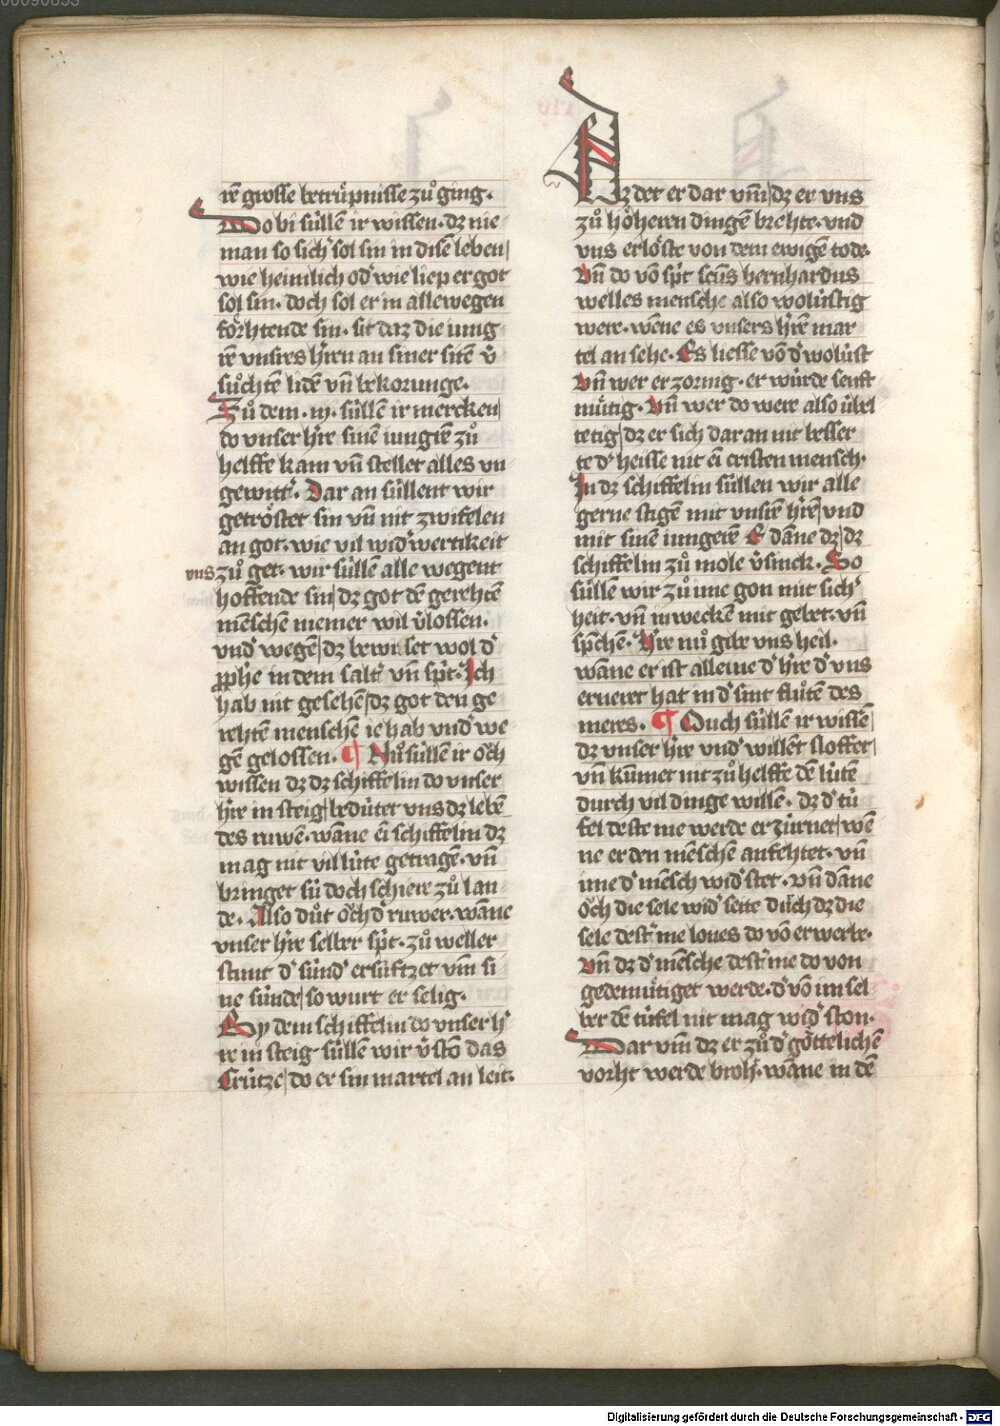 00090853
irē grosse betrüpnisse zůging.
Do bi süllē ir wissen. dz nie
man so sich͛ sol sin in disē leben
wie heimlich od͛ wie liep er got
sol sin. doch sol er in allewegen
förhtende sin. sit daz die iung
rē vnsirs h͛ren an siner sitē v͛
sůchtē lidē vn̄ bekorunge.
Zů dem .iij. süllē ir mercken
do vnser h͛re sinē iungrē zů
helffe kam vn̄ stellet alles vn
gewitt͛. Dar an süllent wir
getröstet sin vn̄ nit zwifelen
an got. wie vil wid͛wertikeit
vns zů get. wir süllē alle wegent
hoffende sin dz got dē gerehtē
mēschē niemer wil v͛lossen.
vnd͛ wegē dz bewiset wol d͛
pphe in dem salt͛ vn̄ sp͛t. Ich
hab nit gesehē dz got den ge
rehtē menschē ie hab vnd͛ we
gē gelossen. ¶ Nů süllē ir öch
wissen dz dz schiffelin do vnser
h͛re in steig bedütet vns dz lebē
des ruwē. wāne ei̅ schiffelin dz
mag nit vil lüte getragē. vn̄
bringet sü doch schiere zů lan
de. Also důt öch d͛ ruwer. wāne
vnser h͛re selber sp͛t. zů weller
stunt d͛ sünd͛ ersüftzet vm̄ si
ne sünde so wurt er selig.
By dem schiffelin do vnser h͛
re in steig süllen wir v͛stō das
Crütze do er sin martel an leit.
Dz det er dar vm̄ dz er vns
zů höheren dingē brehte. vnd
vns erlöste von dem ewigē tode.
Vn̄ do vō sp͛t sc̄us bernhardus
welles mensche also wolüstig
were. wēne es vnsers h͛rē mar
tel an sehe. Es liesse vō d͛ wolüst
Vn̄ wer er zornig. er würde senft
mütig. Vn̄ wer do were also übel
tetig dz er sich dar an nit besser
te d͛ heisse nit ei̅ cristen mensch.
In dz schiffelin süllen wir alle
gerne stigē mit vnsrē h͛rē vnd
mit sinē iungerē E dāne dz dz
schiffelin zů mole v͛sinck. So
süllē wir zů ime gon mit sich͛
heit. vn̄ in wecken mit gebet. vn̄
sp͛chē. H͛re nů gibe vns heil.
wāne er ist alleine d͛ h͛re d͛ vns
erneret hat in d͛ sint flůtē des
meres. ¶ Ouch süllē ir wissē
dz vnser h͛re vnd͛ willēt sloffet
vn̄ kūmet nit zů helffe dē lütē
durch vil dinge willē. dz d͛ tü
fel deste me werde erzürnet wē
ne er den mēschē anfehtet. vn̄
ime d͛ mēsch wid͛stet. vn̄ dāne
öch die sele wid͛ seite durch dz die
sele dest͛ me lones do vō erwerbe.
Vn̄ dz d͛ mēsche dest͛ me do von
gedemütiget werde. d͛ vō im sel
ber dē tüfel nit mag wid͛ston.
Dar vm̄ dz er zů d͛ göttelichē
vorht werde broht. wāne in dē
Digitalisierung gefördert durch die Deutsche Forschungsgemeinschaft - DFG